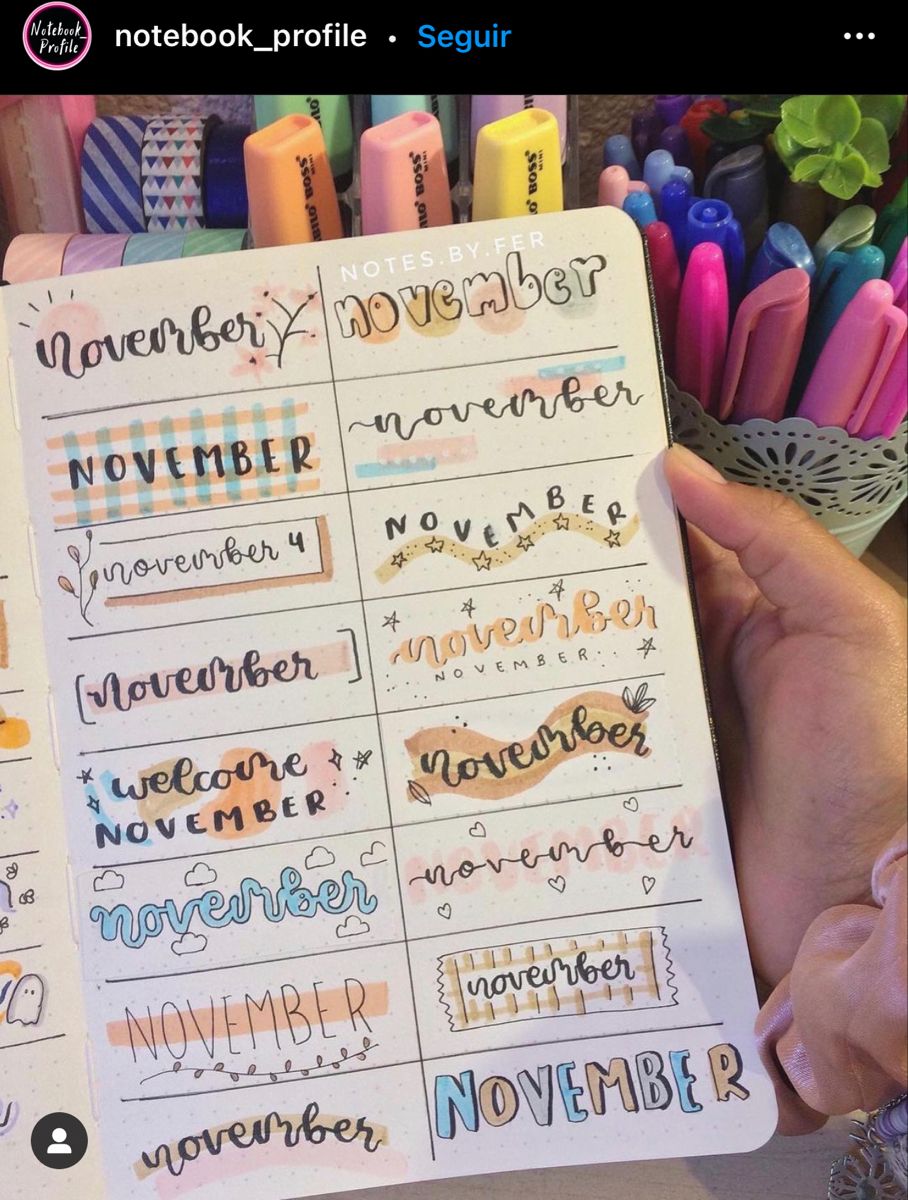 Notebook_
Profile
notebook_profile • Seguir
mini BOSS
BOSS
BOSS
NOTES.BY.FER
november
november
NOVEMBER
november
november 4
NOVEMBER
november
november
NOVEMBER
welcome
NOVEMBER
november
november
november
NOVEMBER
november
november
NOVEMBER